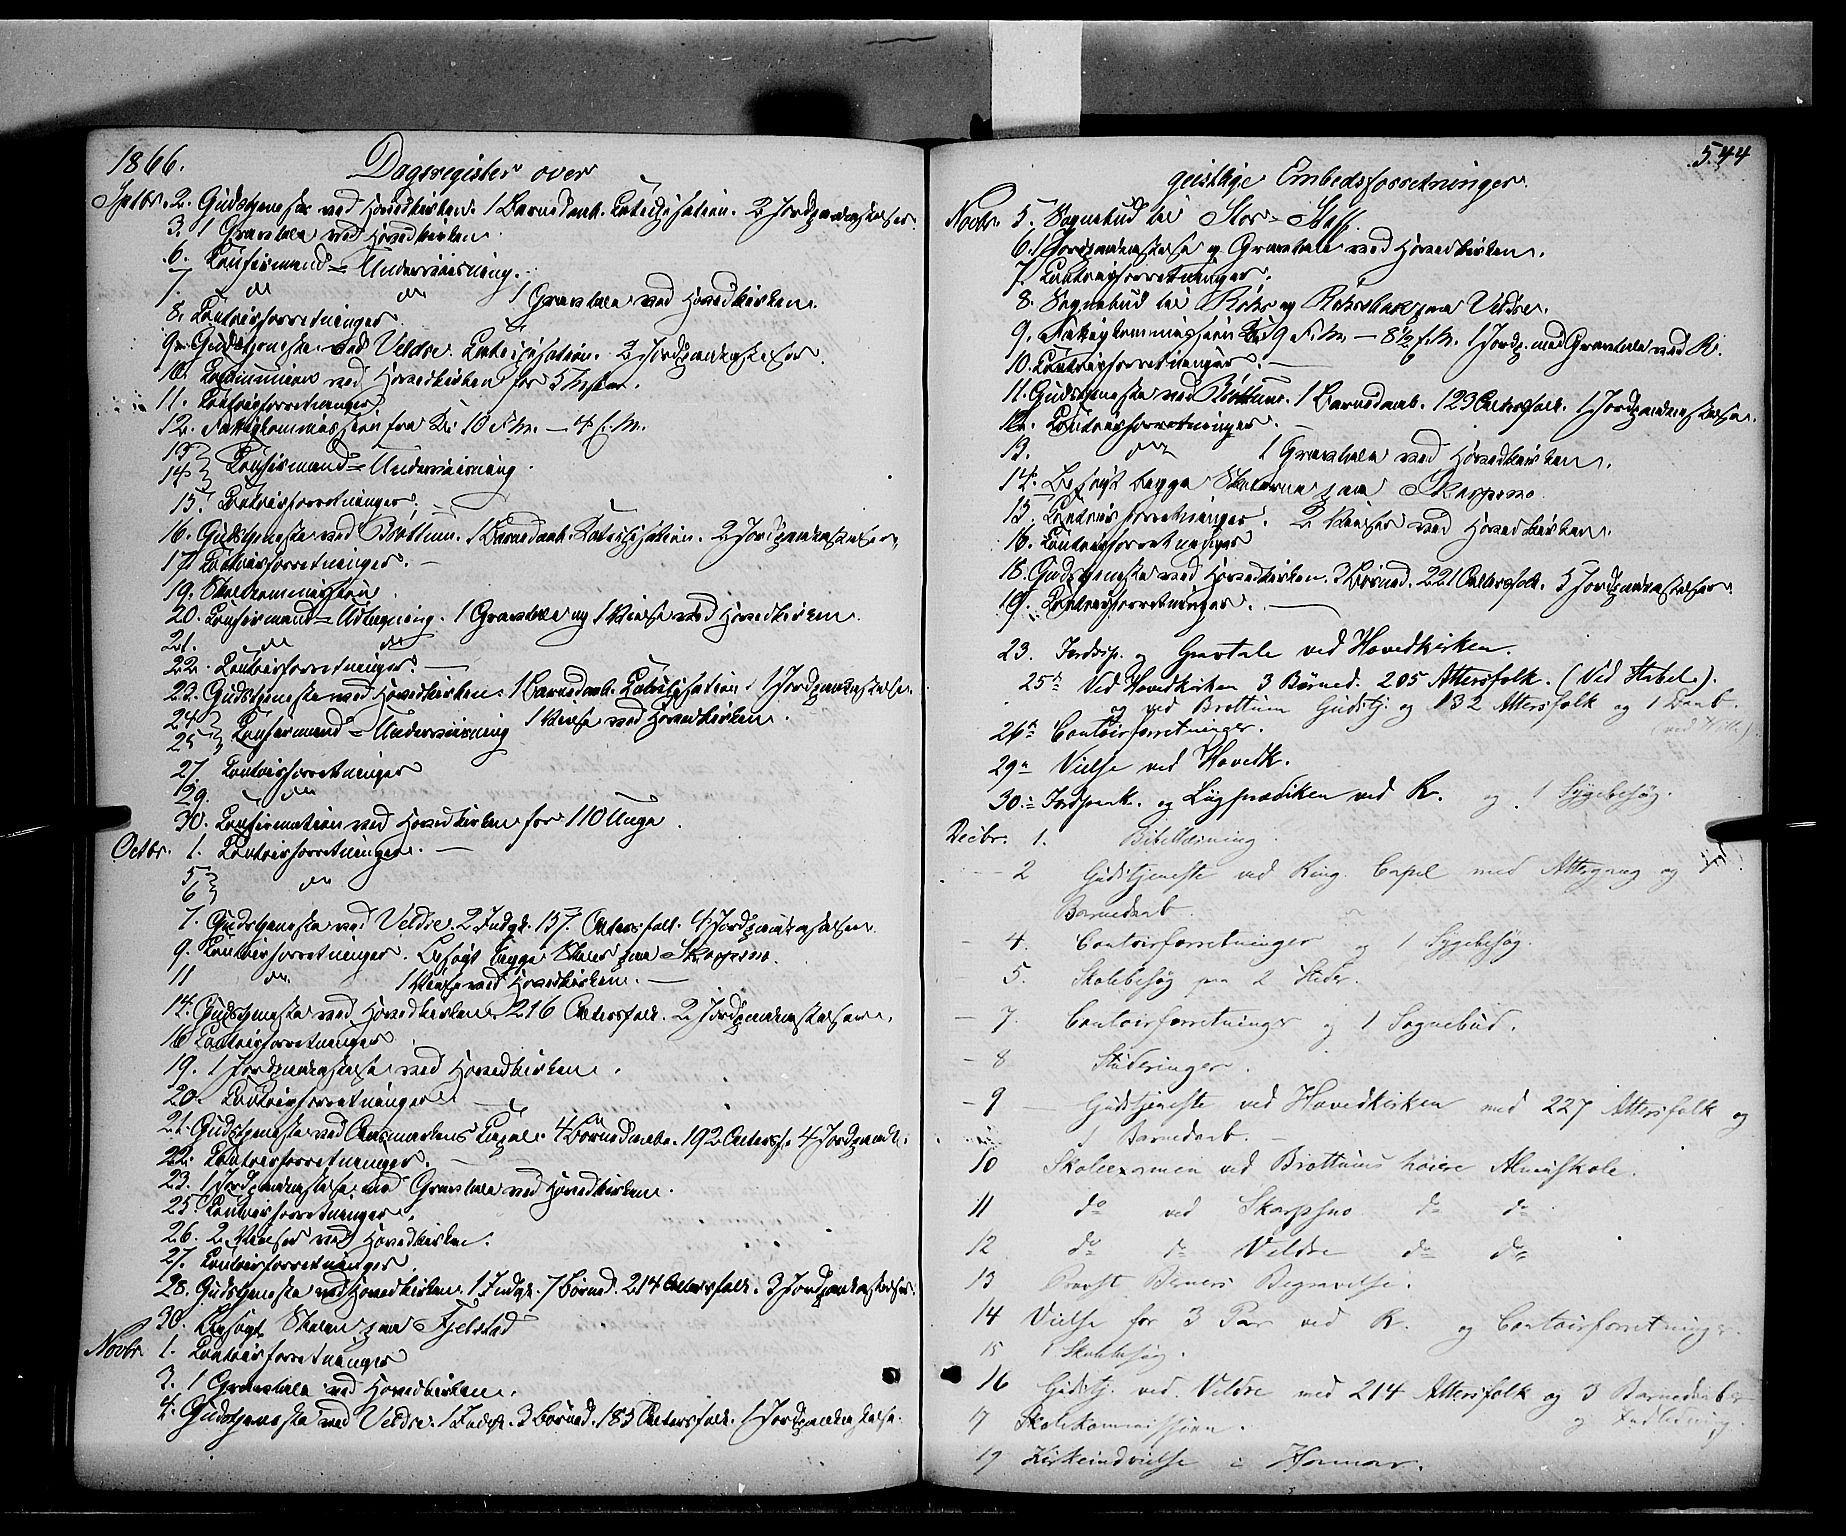 1866. Dagsregister over
Septbr. 2. Gudstjeneste ved Hovedkirken. 1 Barnedaab. Catechisation. 2 Jordpaakastelser.
3. 1 Gravtale ved Hovedkirken.
6. Confirmand-Underviisning.
7. do do 1 Gravtale ved Hovedkirken.
8. Contoirforretninger
9. Gudstjeneste ved Veldre. Catechisation. 2 Jordpaakastelser.
10. Communion ved Hovedkirken for 5
11. Contoirforretninger
12. Fattigkommission fra Kl. 10 F.M. – 4 E.M.
13 } Confirmand-Underviisning.
14 }
15. Contoirforretninger. —
16. Gudstjeneste ved Brøttum. 1 Barnedaab. Catechisation. 2 Jordpaakastelser.
17. Contoirforretninger. —
19. Skolekommission.
20. Confirmand-Udtegning. 1 Gravtale og 1 Vielse ved Hovedkirken.
21. do do
22. Contoirforretninger. —
23. Gudstjeneste ved Hovedkirken. 1 Barnedaab. Catechisation. 1 Jordpaakastelse.
24 } Confirmand-Underviisning 1 Vielse ved Hovedkirken.
25 }
27. Contoirforretninger
29. do
30. Confirmation ved Hovedkirken for 110 Unge.
Octbr. 1. Contoirforretninger. —
5 } do
6 }
7. Gudstjeneste ved Veldre. 2 Indgk. 157. Altersfolk. 4 Jordpaakastelser.
9. Contoirforretninger. Besøgt begge Skoler paa Skarpsno.
11 do 1 Vielse ved Hovedkirken. —
14. Gudstjeneste ved Hovedkirken. 216 Altersfolk. 2 Jordpaakastelser.
16 Contoirforretninger
19. 1 Jordpaakastelse ved Hovedkirken.
20. Contoirforretninger. —
21. Gudstjeneste ved Aasmarkens Capel. 4 Børnedaabe. 192 Altersf. 4 Jordpaak.
22. Contoirforretninger. —
23. 1 Jordpaakastelse med Gravtale ved Hovedkirken.
25 Contoirforretninger.
26. 2 Vielser ved Hovedkirken.
27. Contoirforretninger.
28. Gudstjeneste ved Hovedkirken. 1 Indgk. 7 Børned. 214 Altersfolk. 3 Jordpaakastelser.
30. Besøgt Skolen paa Fjelstad
Novbr 1. Contoirforretninger
3. 1 Gravtale ved Hovedkirken.
4. Gudstjeneste ved Veldre. 1 Indgk. 3 Børned. 183 Altersfolk. 1 Jordpaakastelse.
544
geistlige Embedsforretninger.
Novbr. 5. Sognebud til Stor-
6. 1 Jordpaakastelse og Gravtale ved Hovedkirken.
7. Contoirforretninger.
8. Sognebud til og paa Veldre.
9. Fattigkommission Kl. 9 F.M. – 8½ E.M. 1 Jordp. med Gravtale ved R.
10. Contoirforretninger. —
11. Gudstjeneste ved Brøttum. 1 Barnedaab. 123 Altersfolk. 1 Jordpaakastelse.
12. Contoirforretninger. —
13. do 1 Gravtale ved Hovedkirken.
14. Besøgt begge Skolerne paa Skarpsno
15. Contoirforretninger. 2 Vielser ved Hovedkirken.
16. Contoirforretninger
18. Gudstjeneste ved Hovedkirken. 3 Børned. 221 Altersfolk. 5 Jordpaakastelser.
19. Contoirforretninger. —
23. Jordsp. og Gravtale ved Hovedkirken.
25. Ved Hovedkirken 3 Børned. 205 Altersfolk. (Ved Stabel).
og ved Brøttum Gudstj. og 132 Altersfolk og 1 Daab
26. Contoirforretninger. (ved )
29. Vielse ved Hovedk.
30. Jordpaak. og Liigprædiken ved R. og 1 Sygebesøg.
Decbr. 1. Bibellæsning.
2 Gudstjeneste ved Ring. Capel med Altergang og
Barnedaab.
4. Contoirforretninger og 1 Sygebesøg.
5. Skolebesøg paa 2 Steder.
7. Contoirforretninger og 1 Sognebud.
8 Studeringer.
9 Gudstjeneste ved Hovedkirken med 227 Altersfolk og
1 Barnedaab. —
10 Skoleexamen ved Brøttums høiere Almuskole.
11 do ved Skarpsno do do
12 do do Veldre do do
13 Provst Begravelse.
14 Vielse for 3 Par ved R. og Contoirforretninger.
15 1 Skolebesøg.
16 Gudstj. ved. Veldre med 214 Altersfolk og 3 Barnedaab
og Indledning
17 Skolekommission.
19 Kirkeindvielse i Hamar.